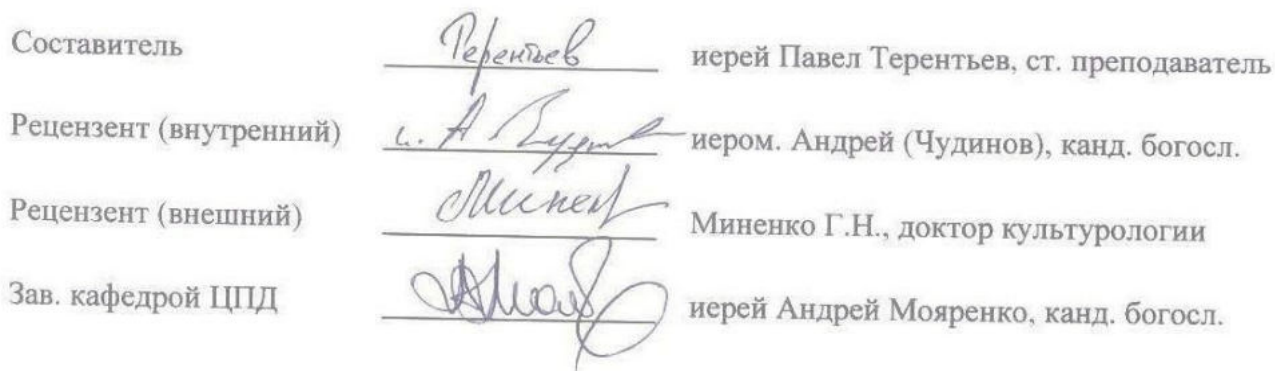 Составитель Терентьев иерей Павел Терентьев, ст. преподаватель
Рецензент (внутренний) и. А иером. Андрей (Чудинов), канд. богосл.
Рецензент (внешний) иерей Миненко Г.Н., доктор культурологии
Зав. кафедрой ЦПД иерей Андрей Мояренко, канд. богосл.